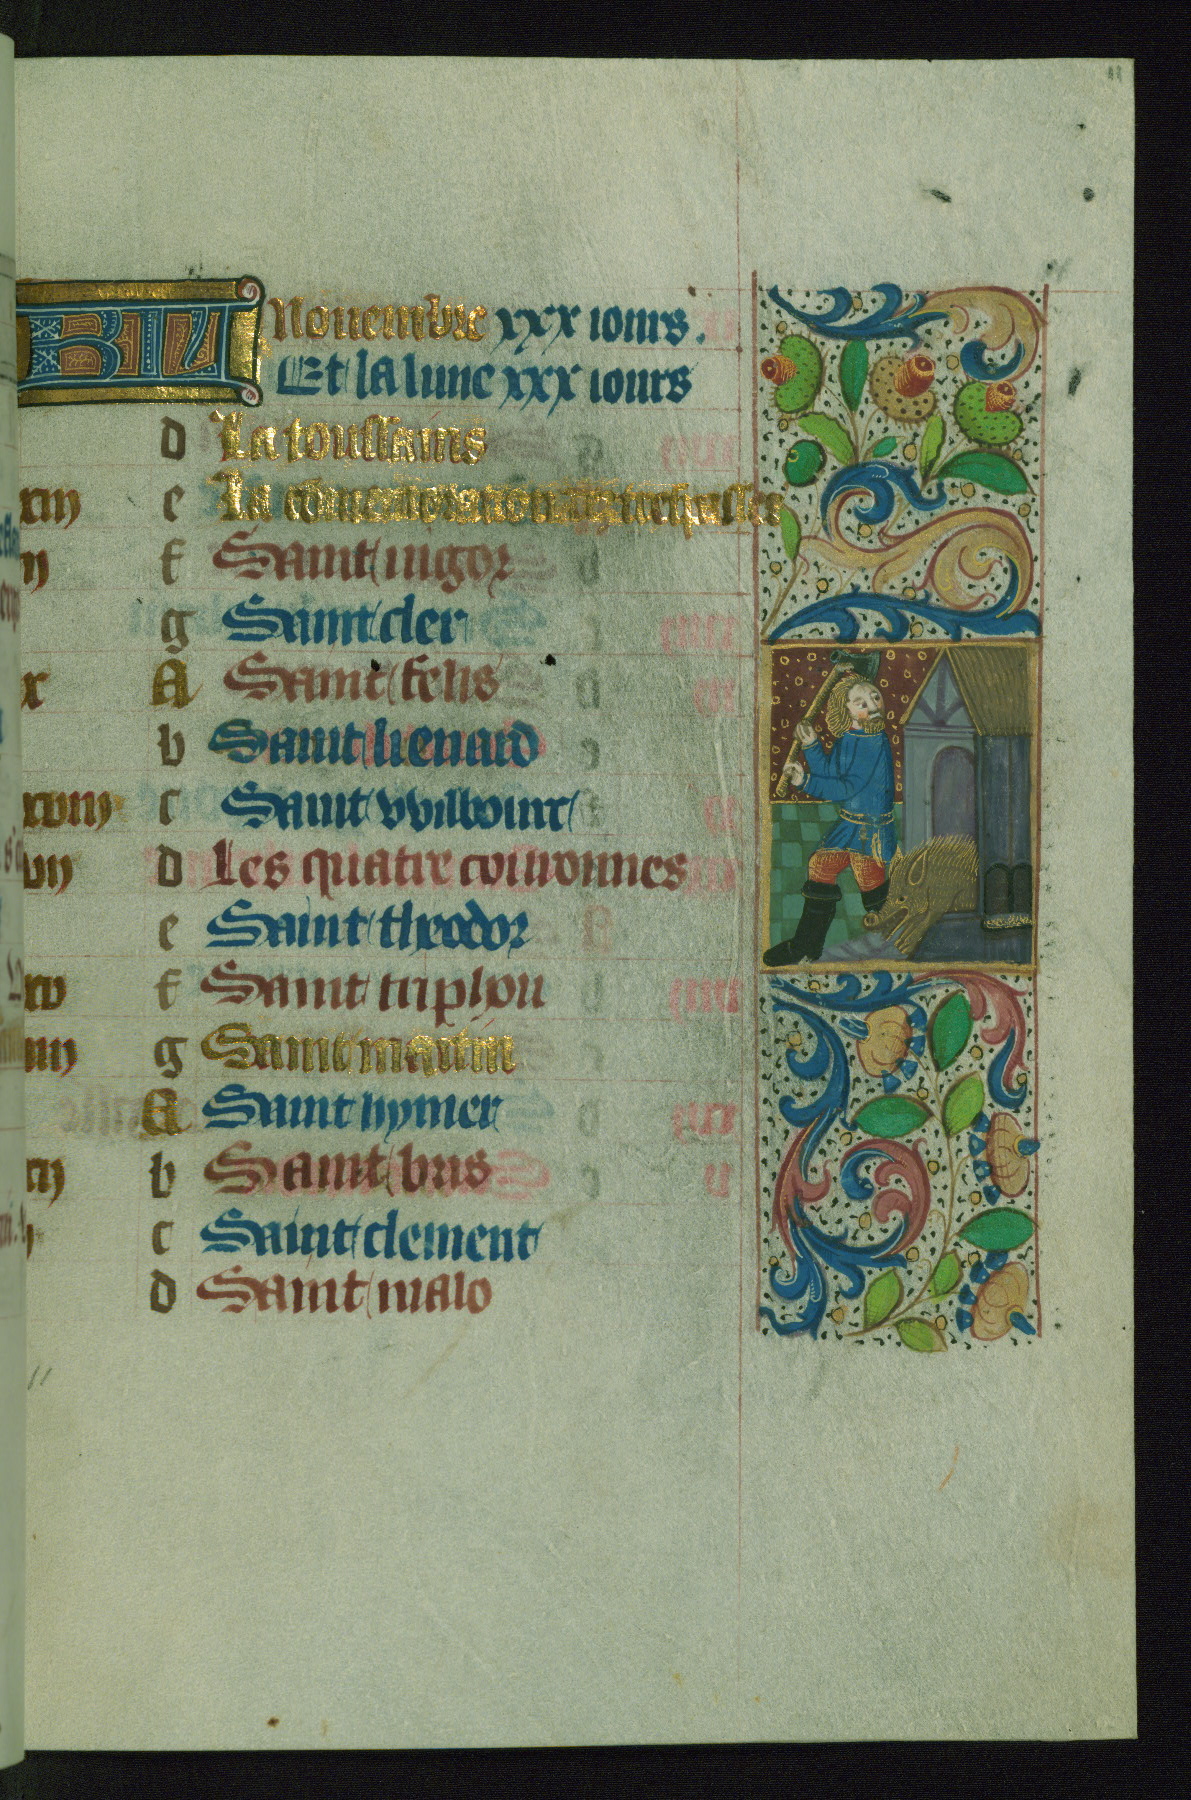 KL Nouembre xxx iours.
Et la lune xxx iours
d La toussains
xiii e La
f Saint uigor
g Saint cler
x A Saint felis
b Saint lienard
xviii c Saint vvilboirt
vii d Les quatre couronnes
e Saint theodor
xv f Saint triphon
iiii g Saint martin
A Saint hymer
xii b Saint bris
c Saint clement
d Saint malo